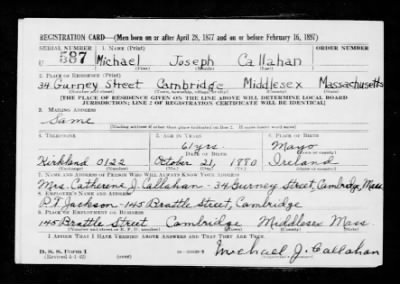 REGISTRATION CARD—(Men born on or after April 28, 1877 and on or before February 16, 1897)
SERIAL NUMBER 1. NAME (Print)
U 587 Michael Joseph Callahan
(First) (Middle) (Last)
2. PLACE OF RESIDENCE (Print)
34 Gurney Street Cambridge Middlesex Massachusetts
[THE PLACE OF RESIDENCE GIVEN ON THE LINE ABOVE WILL DETERMINE LOCAL BOARD
JURISDICTION; LINE 2 OF REGISTRATION CERTIFICATE WILL BE IDENTICAL]
3. MAILING ADDRESS
Same
[Mailing address if other than place indicated on line 2. If same insert word same]
4. TELEPHONE 5. AGE IN YEARS 6. PLACE OF BIRTH
61 yrs Mayo
DATE OF BIRTH
Kirkland 0122 October 21, 1880 Ireland
7. NAME AND ADDRESS OF PERSON WHO WILL ALWAYS KNOW YOUR ADDRESS
Mrs. Catherine J. Callahan - 34 Gurney Street, Cambridge, Mass.
8. EMPLOYER'S NAME AND ADDRESS
P.T. Jackson - 145 Brattle Street, Cambridge
9. PLACE OF EMPLOYMENT OR BUSINESS
145 Brattle Street Cambridge Middlesex Mass.
I AFFIRM THAT I HAVE VERIFIED ABOVE ANSWERS AND THAT THEY ARE TRUE.
D. S. S. Form 1
(Revised 4-1-42)
Michael J. Callahan